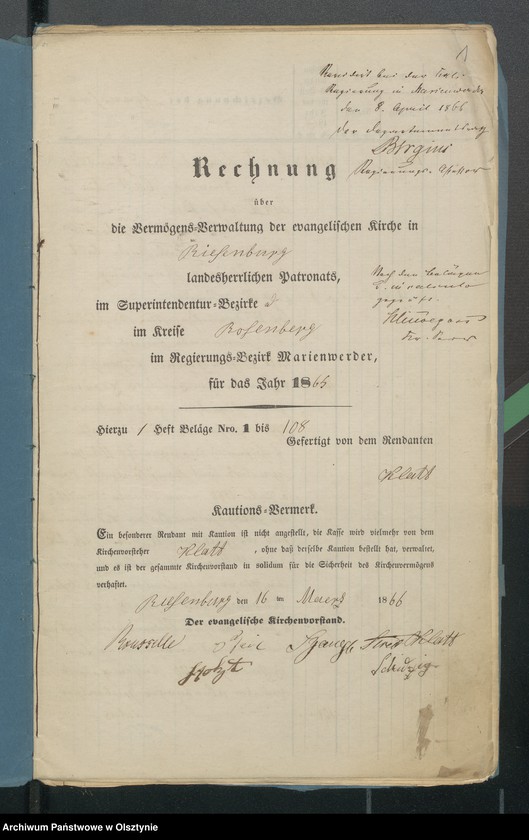 1
Revidirt bei der Kgl.
Regierung in Marienwerder
den 8. April 1866
Der Departements
Regierungs-
Rechnung
über
die Vermögens-Verwaltung der evangelischen Kirche in
Riesenburg
landesherrlichen Patronats,
im Superintendentur-Bezirke
im Kreise Rosenberg
im Regierungs-Bezirk Marienwerder,
für das Jahr 1865
Nach den Belägen
geprüft.
Hierzu 1 Heft Beläge Nro. 1 bis 108
Gefertigt von dem Rendanten
Klatt
Kautions-Vermerk.
Ein besonderer Rendant mit Kaution ist nicht angestellt, die Kasse wird vielmehr von dem
Kirchenvorsteher Klatt, ohne daß derselbe Kaution bestellt hat, verwaltet,
und es ist der gesammte Kirchenvorstand in solidum für die Sicherheit des Kirchenvermögens
verhaftet.
Riesenburg den 16 ten Maerz 1866
Der evangelische Kirchenvorstand.
Klatt
Archiwum Państwowe w Olsztynie